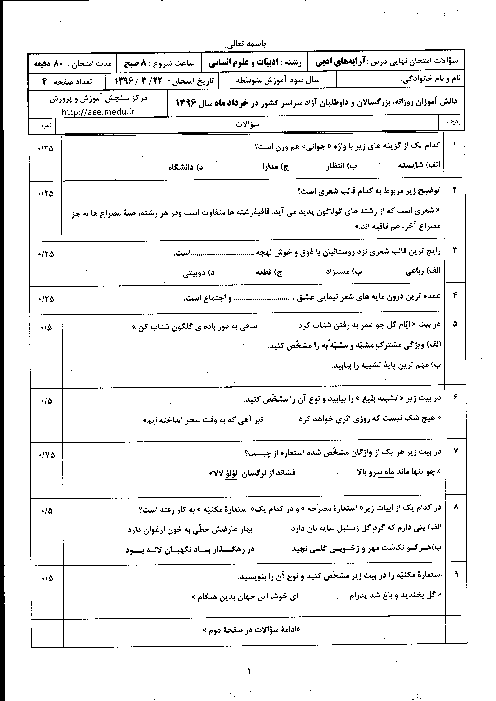 باسمه تعالی
سؤالات امتحان نهایی درس: آرایه‌های ادبی رشته: ادبیات و علوم انسانی ساعت شروع: ۸ صبح مدت امتحان: ۸۰ دقیقه
نام و نام خانوادگی: سال سوم آموزش متوسطه تاریخ امتحان: ۱۳۹۶/۳/۲۲ تعداد صفحه ۴
دانش آموزان روزانه، بزرگسالان و داوطلبان آزاد سراسر کشور در خرداد ماه سال ۱۳۹۶ مرکز سنجش آموزش و پرورش
http://aee.medu.ir
ردیف سؤالات نمره
۱ کدام یک از گزینه های زیر با واژه « جوانی» هم وزن است؟ ۰/۲۵
الف) شایسته ب) انتظار ج) مدارا د) دانشگاه
۲ توضیح زیر مربوط به کدام قالب شعری است؟ ۰/۲۵
« شعری است که از رشته های گوناگون پدید می آید. قافیه رشته ها متفاوت است ودر هر رشته، همهٔ مصراع ها به جز
مصراع آخر، هم قافیه اند.»
۳ رایج ترین قالب شعری نزد روستائیان با ذوق و خوش لهجه ............ است. ۰/۲۵
الف) رباعی ب) مستزاد ج) قطعه د) دوبیتی
۴ عمده ترین درون مایه های شعر نیمایی عشق ، ............ و اجتماع است. ۰/۲۵
۵ در بیت « ایّام گل چو عمر به رفتن شتاب کرد ساقی به دور باده ی گلگون شتاب کن » ۰/۵
الف) ویژگی مشترک مشبّه و مشبّهٌ به را مشخّص کنید.
ب) مهم ترین پایهٔ تشبیه را بیابید.
۶ در بیت زیر « تشبیه بلیغ » را بیابید و نوع آن را مشخّص کنید. ۰/۵
« هیچ شک نیست که روزی اثری خواهد کرد تیر آهی که به وقت سحر انداخته ایم»
۷ در بیت زیر هر یک از واژگان مشخّص شده استعاره از چیست؟ ۰/۷۵
«چو تنها ماند ماه سرو بالا فشاند از نرگسان لؤلؤ لالا»
۸ در کدام یک از ابیات زیر « استعارهٔ مصرّحه » و در کدام یک « استعارهٔ مکنیّه » به کار رفته است؟ ۰/۵
الف) بتی دارم که گرد گل ز سنبل سایه بان دارد بهار عارضش خطّی به خون ارغوان دارد
ب) هرگو نکاشت مهر و ز خوبی گلی نچید در رهگذار باد نگهبان لاله بود
۹ استعارهٔ مکنیّه را در بیت زیر مشخّص کنید و نوع آن را بنویسید. ۰/۵
« گل بخندید و باغ شد پدرام ای خوشا این جهان بدین هنگام »
«ادامهٔ سؤالات در صفحهٔ دوم »
۱